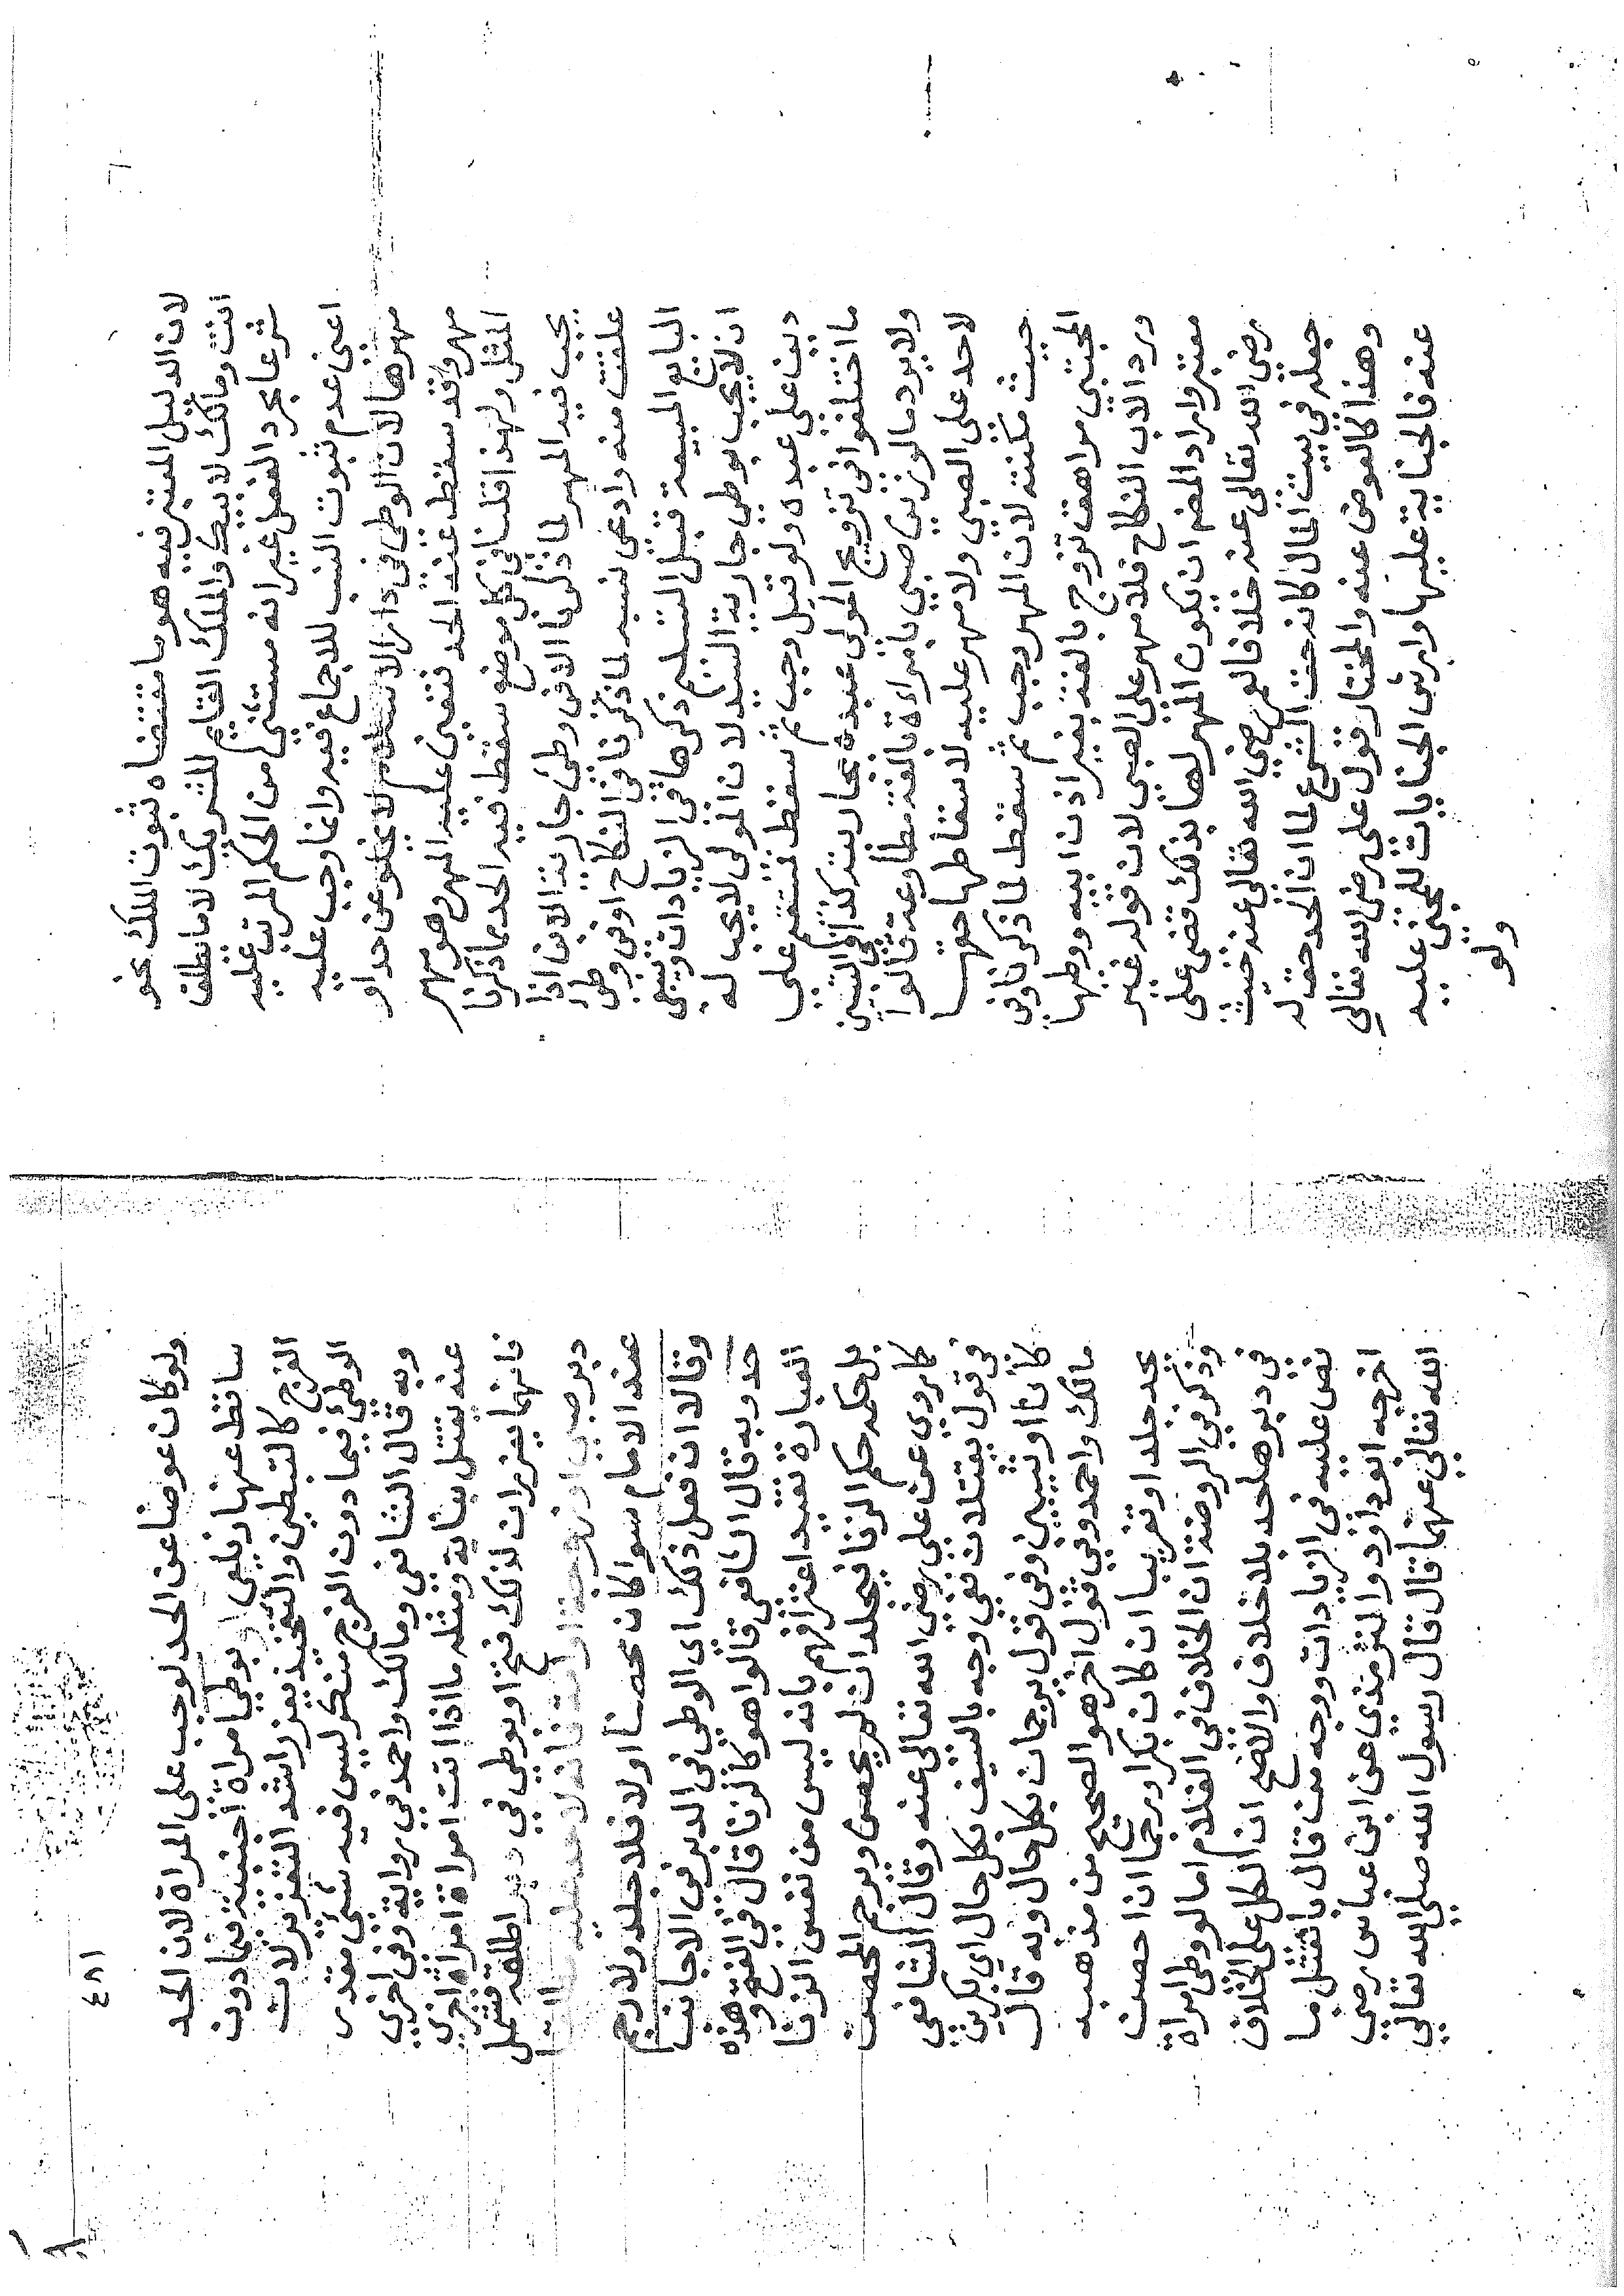 لان الدليل المعتبر فيه هو ما مقتضاه ثبوت الملك نحو
انت ومالك لابيك والملك القايم للشريك لا ما نطلق
شرعا مجرد الفعل غير انه مستثنى من الحكم المرتب عليه
اعنى عدم ثبوت النسب للاجماع فيه وانما وجب عليه
مهرها لان الوطى فى دار الاسلام لا يخلو عن حد او
مهر وقد سقط عنه الحد فتعين عليه المهر وهو مهر
المثل ولهذا قلنا فى كل موضع سقط فيه الحد مما ذكرنا
يجب فيه المهر لما ذكرنا الا فى وطئ جارية الابن اذا
علقت منه وادعى نسبه لما ذكرنا فى النكاح او فى وطى
البايع المبيعة قبل التسليم ذكرها فى الزيادات وينبغى
ان لا يجب بوطى جارية السيد لان المولى لا يجب له
دين على عبده ولو قيل وجب ثم سقط فمستقيم على
ما اختلفوا فى تزويج المولى عبده بجاريته كذا فى التبيين
ولا يرد ما لو زنى صبى بامراة بالغة مطاوعة قالوا
لا حد على الصبى ولا مهر عليه لاسقاطها حقها
حيث مكنته لان المهر وجب ثم سقط لما ذكرنا وفى
المجتبى مراهق تزوج بالغة بغير اذن ابيه ووطيها
ورد الاب النكاح فلا مهر على الصبى لان قوله غير
معتبر وارد المص ان يكون المهر لها بذلك قضى على
رضى الله تعالى عنه خلافا لعمر رضى الله تعالى عنه حيث
جعله فى بيت المال كانه حق الشرع لما ان الحد حق له
وهذا كالعوض عنه والمختار قول على رضى الله تعالى
عنه فالجناية عليها وارش الجنايات للمجنى عليه
ولو
٤٨١
ولو كان عوضا عن الحد لوجب على المراة لان الحد
ساقط عنها زيلعى او بوطى امراة اجنبية فيما دون
الفرج كالتبطين والتفخيذ يعزر اشد التعزير لان
الوطئ فيما دون الفرج منكر ليس فيه شئ مقدر
وبه قال الشافعى ومالك واحمد فى رواية وفى اخرى
عنه يقتل بغاية ومثله ما اذا اتت امراة امراة اخرى
فانهما يعزران لذلك فتح او بوطى فى دبر اطلقه فشمل
دبر صبى او زوجة او امة فانه لا حد عليه
عند الامام سوا كان محصنا او لا فلا جلد ولا رجم
وقالا ان فعل ذلك اى الوطى فى الدبر فى الاجانب
حد وبه قال الشافعى قالوا هو كالزنا قال فى الفتح وهذه
العبارة تفيد اعترافهم بانه ليس من نفس الزنا
بل حكمه حكم الزنا فيجلد ان لم يحصن ويرجم المحصن
كما روى عن على رضى الله تعالى عنه وقال الشافعى
فى قول يقتلان ففى وجه بالسيف بكل حال اى بكرين
كانا او ثيبين وفى قول يرجمان بكل حال وبه قال
مالك واحمد وفى قول اخر هو الصحيح من مذهبه
يحد جلدا وتغريبا ان كان بكرا ورجما ان احصن
وذكر فى الروضة ان الخلاف فى الغلام اما لو وطى امراة
فى دبرها حد بلا خلاف والاصح ان الكل على الخلاف
نص عليه فى الزيادات ووجه من قال بالقتل ما
اخرجه ابو داود والترمذى عن ابن عباس رضى
الله تعالى عنهما قال قال رسول الله صلى الله تعالى